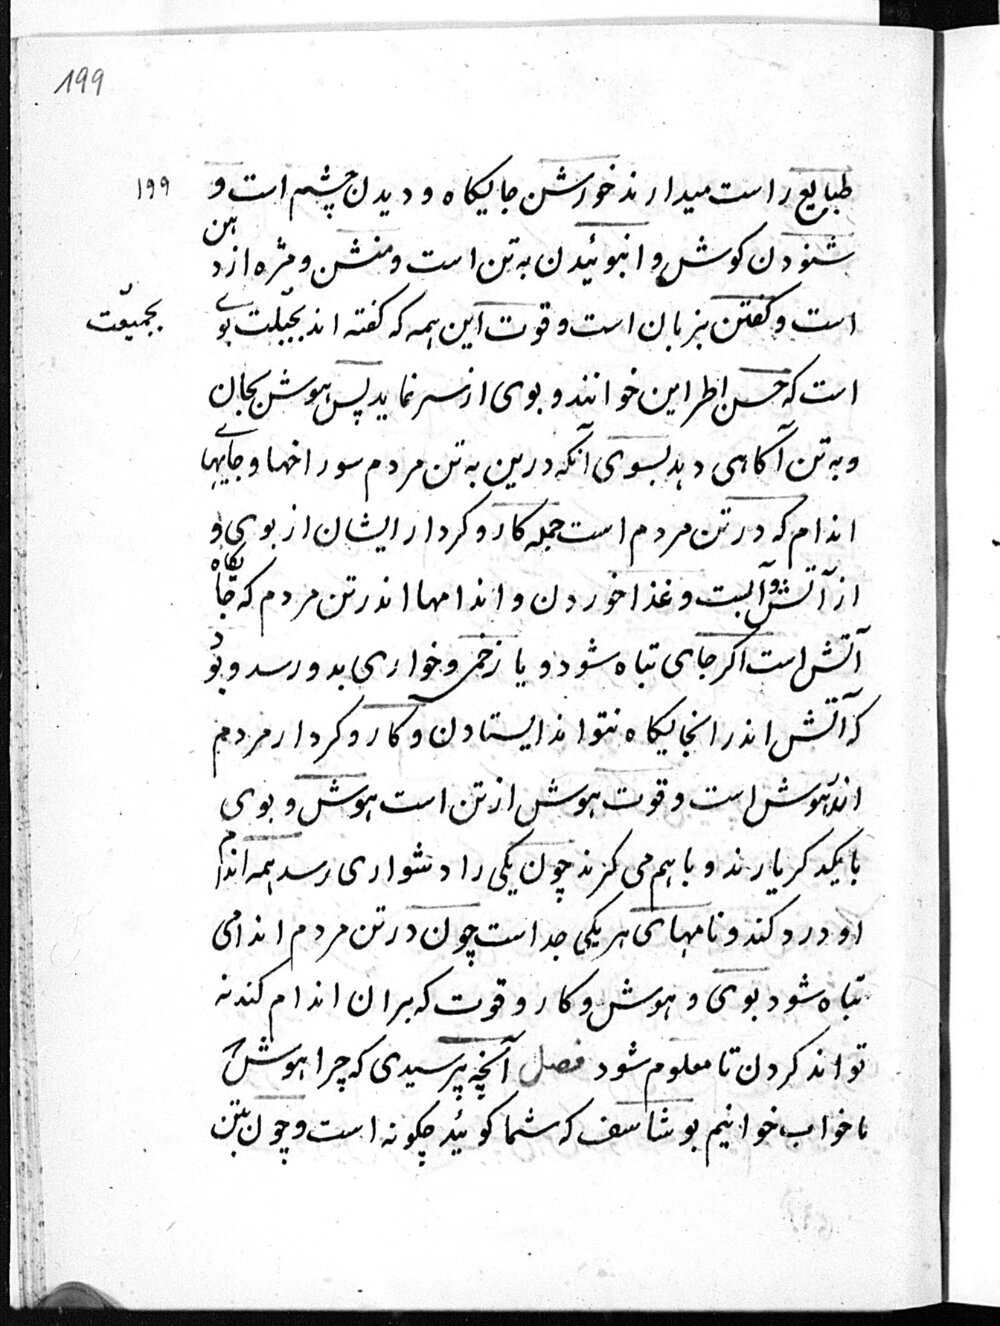 199
طبایع راست میدارند خورشن جایکاه و دیدن چشم است و
۱۹۹
شنودن کوش و انبوئیدن به تن است و منش و مزه از دهن
است و کفتن بزبان است و قوت این همه که کفته اند بجبلّت بوی
بجمیعت
است که حسن اطر این خوانند و بوی از سر نماید پس هوش بجان
و به تن آکاهی دهد بسوی آنکه درین به تن مردم سوراخها و جایهای
اندام که در تن مردم است جمله کار و کردار ایشان از بوی و
از آتش و آبست و غذا خوردن و اندامها اندر تن مردم که جایکاه
آتش است اکر جای تباه شود و یا زخمی و خواری بدو رسد و بود
که آتش اندر انجایکاه نتواند ایستادن و کار و کردار مردم
اندر هوش است و قوت هوش از تن است هوش و بوی
با یکدکر یارند و با هم می کرند چون یکی را دشواری رسد همه اندام
او درد کند و نامهای هر یکی جداست چون در تن مردم اندامی
تباه شود بوی و هوش و کار و قوت که بران اندام کند نه
تواند کردن تا معلوم شود فصل آنچه پرسیدی که چرا هوش
نا خواب خوانیم بوشاسف که شما کوئید چکونه است و چون بتن